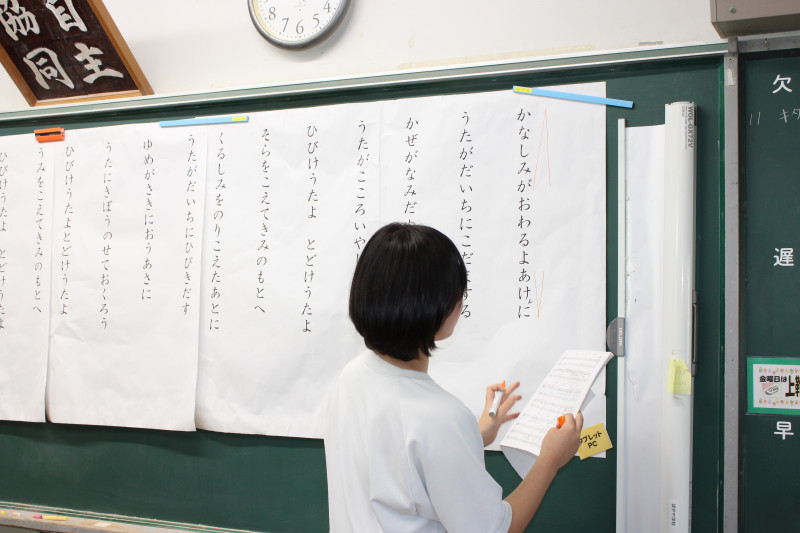 自主
協同
8 7 6 5 4
かなしみがおわるよあけに
うたがだいちにこだまする
かぜがなみだ
うたがこころいや
ひびけうたよ とどけうたよ
そらをこえてきみのもとへ
くるしみをのりこえたあとに
うたがだいちにひびきだす
ゆめがさきにおうあさに
うたにきぼうのせておくろう
ひびけうたよとどけうたよ
うみをこえてきみのもとへ
ひびけうたよ とどけうたよ
タブレット
PC
欠
11 キタ
遅
金曜日は
上
早